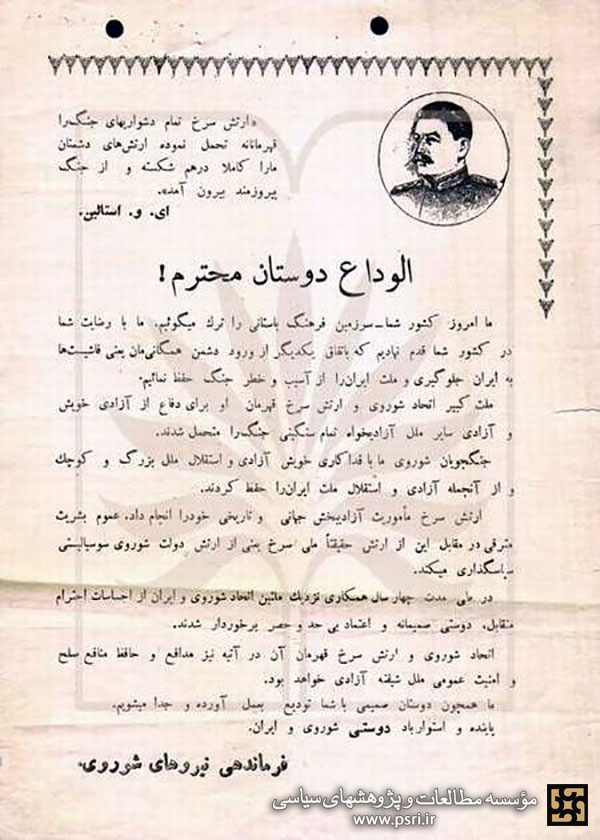 «ارتش سرخ تمام دشواریهای جنگ‌را
قهرمانانه تحمل نموده ارتش‌های دشمنان
مارا کاملا درهم شکسته و از جنگ
پیروزمند بیرون آمد».
ای. و. استالین.
الوداع دوستان محترم!
ما امروز کشور شما-سرزمین فرهنگ باستانی را ترك میگوئیم. ما با رضایت شما
در کشور شما قدم نهادیم که باتفاق یکدیگر از ورود دشمن همگانی‌مان یعنی فاشیست‌ها
به ایران جلوگیری و ملت ایران‌را از آسیب و خطر جنگ حفظ نمائیم.
ملت کبیر اتحاد شوروی و ارتش سرخ قهرمان او برای دفاع از آزادی خویش
و آزادی سایر ملل آزادیخواه تمام سنگینی جنگ‌را متحمل شدند.
جنگجویان شوروی ما با فداکاری خویش آزادی و استقلال ملل بزرگ و کوچك
و از آنجمله آزادی و استقلال ملت ایران‌را حفظ کردند.
ارتش سرخ مأموریت آزادیبخش جهانی و تاریخی خودرا انجام داد. عموم بشریت
مترقی در مقابل این از ارتش حقیقتاً ملی سرخ یعنی از ارتش دولت شوروی سوسیالیستی
سپاسگذاری میکند.
در طی مدت چهار سال همکاری نزدیك مابین اتحاد شوروی و ایران از احساسات احترام
متقابل، دوستی صمیمانه و اعتماد بی حد و حصر برخوردار شدند.
اتحاد شوروی و ارتش سرخ قهرمان آن در آتیه نیز مدافع و حافظ منافع صلح
و امنیت عمومی ملل شیفته آزادی خواهد بود.
ما همچون دوستان صمیمی با شما تودیع بعمل آورده و جدا میشویم.
پاینده و استوارباد دوستی شوروی و ایران.
فرماندهی نیروهای شوروی.
مؤسسه مطالعات و پژوهشهای سیاسی
www.psri.ir